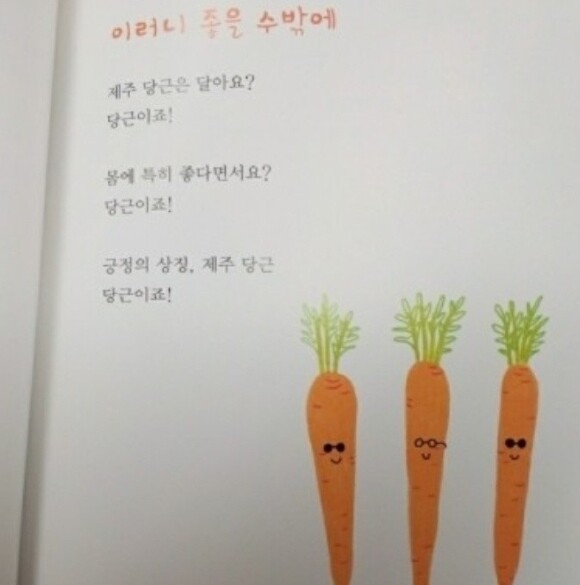 이러니 좋을 수밖에
제주 당근은 달아요?
당근이죠!
몸에 특히 좋다면서요?
당근이죠!
긍정의 상징, 제주 당근
당근이죠!